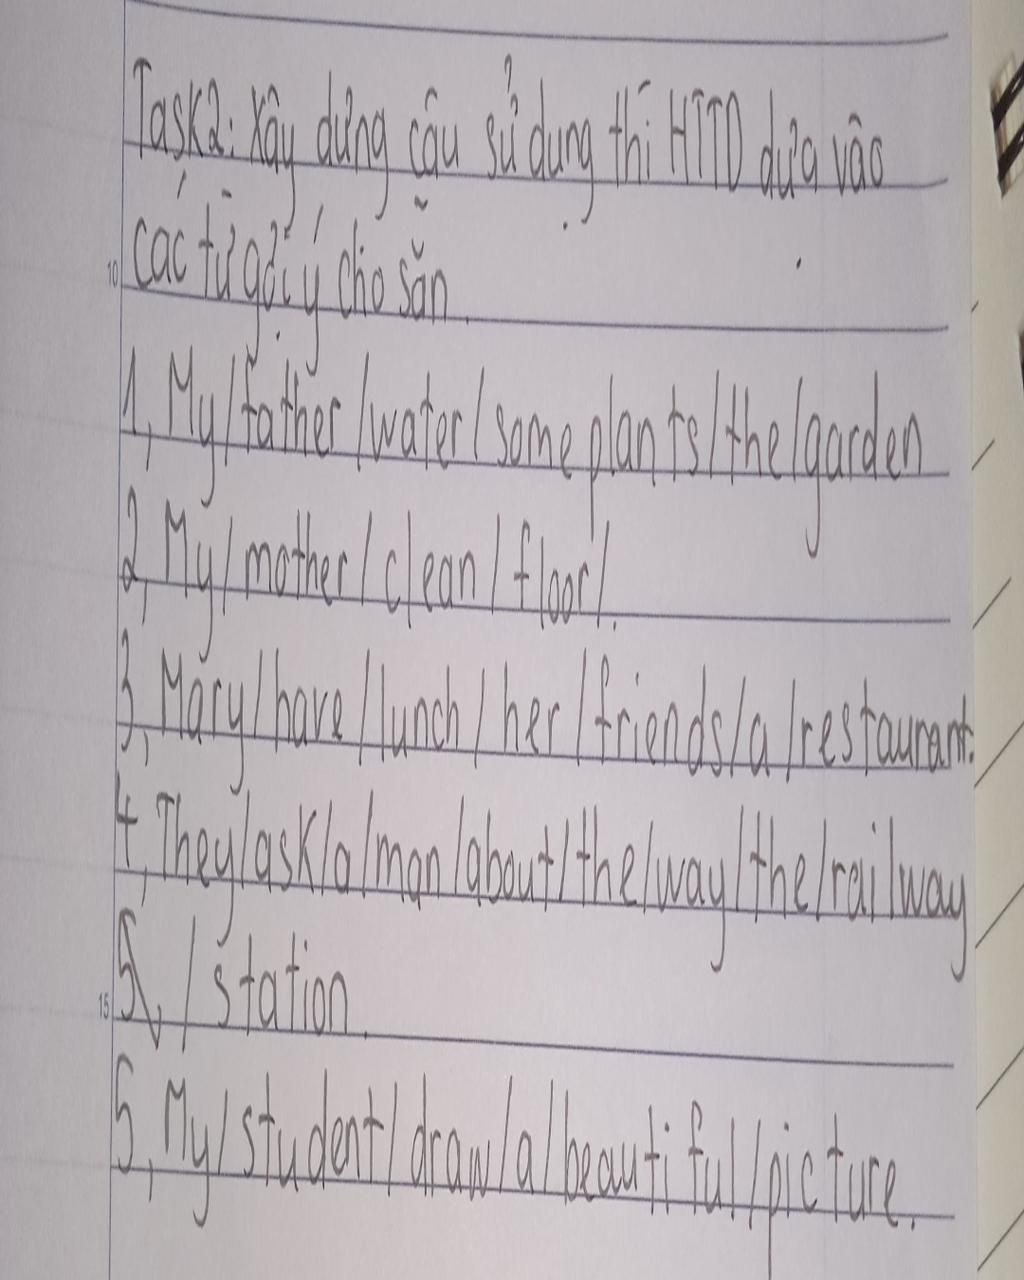 Task2: Xây dựng câu sử dụng thì HTTD dựa vào
các từ gợi ý cho sẵn.
1, My/father/water/some plants/the/garden
2, My/mother/clean/floor/.
3, Mary/have/lunch/her/friends/a/restaurant.
4, They/ask/a/man/about/the/way/the/railway
5, /station.
5, My/student/draw/a/beautiful/picture.
10
15